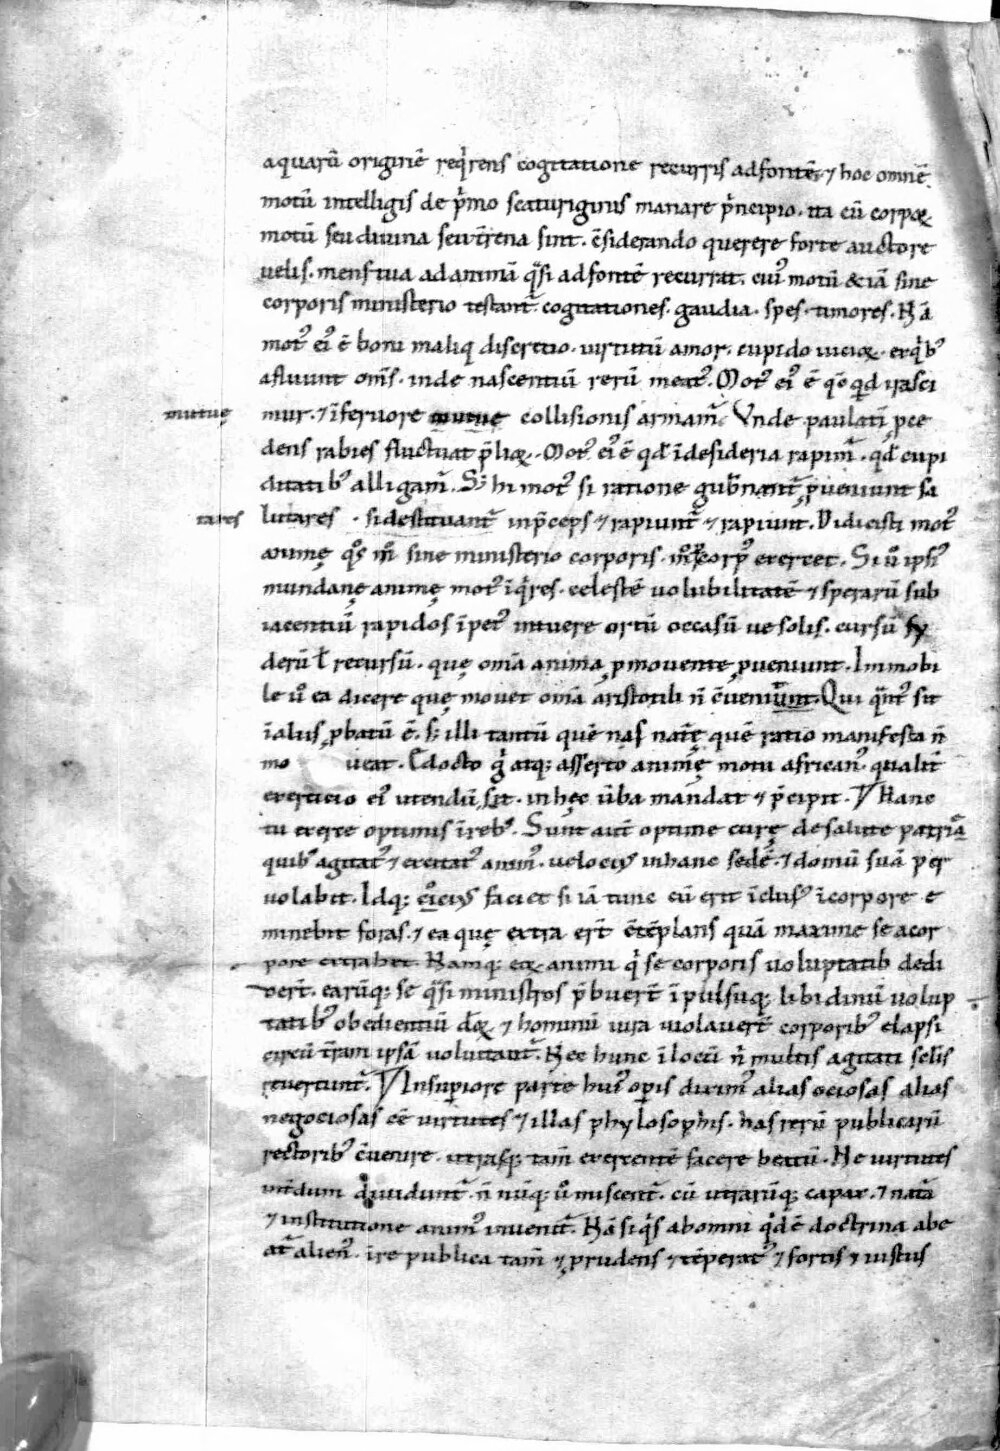 aquarū originē reqͥrens cogitatione recurris ad fontē ⁊ hoc omnē
motū intelligis de pͥmo scaturiginis manare pͥncipio. ita cū corpoꝝ
motū seu divina seu t̄rena sint. c̄siderando querere forte auctorē
uelis. mens tua ad animā qͣsi ad fontē recurrat. cuiꝰ motū & iā sine
corporis ministerio testant᷑ cogitationes. gaudia. spes. timores. Nā
motꝰ eiꝰ ē boni maliq; discretio. uirtutū amor. cupido uicioꝝ. ex qͥbꝰ
afluunt om̄s. inde nascentiū rerū meatꝰ. Motꝰ eiꝰ ē qc̄ qͥd irasci
mutuę
mur. ⁊ ī feruore mutuę collisionis armam᷑ Vnde paulatī pce
dens rabies fluctuat p̄lioꝝ. Motꝰ eiꝰ ē qd̄ ī desideria rapim᷑. qd̄ cupi
ditatibꝰ alligam᷑. S; hi motꝰ si ratione gub̄nant᷑ ꝓueniunt sa
tares
lutares . si destituant᷑ in p̄ceps ⁊ rapiunt᷑ ⁊ rapiunt. Didicisti motꝰ
animę qͦs m̄ sine ministerio corporis. m̊ corpꝰ exercet. Si ů ipsiꝰ
mundanę animę motꝰ īqͥres. celestē uolubilitatē ⁊ sperarū sub
iacentiū rapidos īpetꝰ intuere ortū occasū ue solis. cursū sy
derū ł recursū. quę om̄a anima ꝓmouente ꝓueniunt. Immobi
lē ů eā dicere quę mouet om̄a aristotili n̄ c̄ueniunt. Qui qͣntꝰ sit
ī alus ꝓbatū ē. s; illi tantū quē naſ nat̄ę quē ratio manifesta n̄
mo      ueat. Edocto gͦ atq; asserto animę motu africanꝰ. qualit̄
exercicio eiꝰ utendū sit. in hęc ūba mandat ⁊ p̄cipit. V Hanc
tu exerce optimis ī rebꝰ. Sunt aut̄ optime curę de salute patrię
quibꝰ agitatꝰ ⁊ exercitatꝰ animꝰ. uelociꝰ in hanc sedē. ⁊ domū suā per
uolabit. Idq; ociciꝰ faciet si iā tunc cū erit īclusꝰ ī corpore e
minebit foras. ⁊ ea quę extra erūt c̄tēplans quā maxime se a cor
pore extrahet. Namq; eoꝝ animi qͥ se corporis uoluptatib dedi
der̄t. earūq; se qͣsi ministros p̄buer̄t īpulsuq; libidinū uolup
tatibꝰ obedientiū dͦꝝ ⁊ hominū iura uiolauer̄t corporibꝰ elapsi
circū t̄ram ipsā uolutant᷑. Nec hunc ī locū n̄ multis agitati sc̄lis
reuertunt᷑. V In supiore parte huiꝰ opis diximꝰ alias ociosas alias
negociosas cē uirtutes ⁊ illas phylosophis. has rerū publicarū
rectoribꝰ c̄uenire. utrasq; tam̄ exercentē facere beatū. He uirtutes
int̄dum diuidunt᷑. n̄ nūq; ů miscent᷑. cū utrarūq; capax. ⁊ natā
⁊ institutione animꝰ inuenit᷑. Nā siqͥs ab omni qͥdē doctrina abe
at᷑ alienꝰ. ī re publica tam̄ ⁊ prudens ⁊ tēperatꝰ ⁊ fortis ⁊ iustus